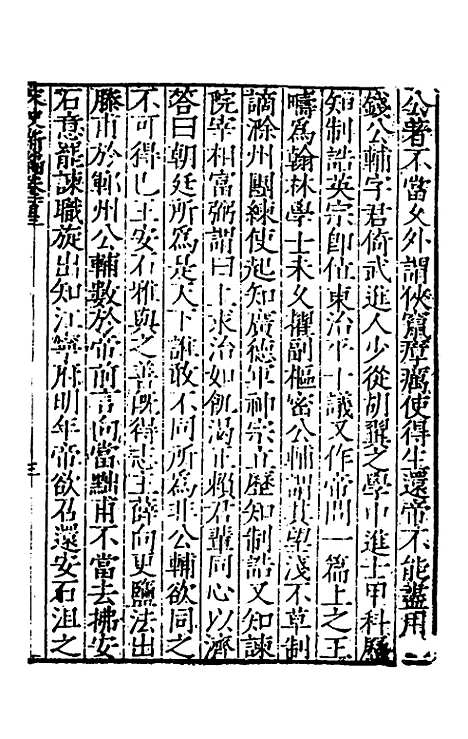 公著不當久外謂俠竄瘴癘使得生還帝不能盡用
錢公輔字君倚武進人少從胡翼之學中進士甲科歷
知制誥英宗即位東治平十議又作帝問一篇上之王
疇為翰林學士未久擢副樞密公輔謂其望淺不草制
謫滁州團練使起知廣德軍神宗立歷知制誥又知諫
院宰相富弼謂曰上求治如飢渴正賴君輩同心以濟
答曰朝廷所為是天下誰敢不同所為非公輔欲同之
不可得已王安石雅與之善既得志王薛向更鹽法出
滕甫於鄆州公輔數於帝前言向當黜甫不當去拂安
石意罷諫職旋出知江寧府明年帝欲召還安石沮之
宋史新編卷 三